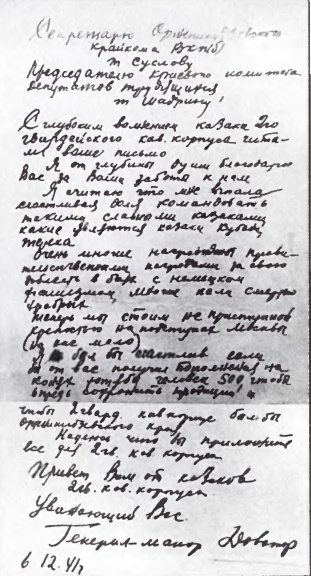 Секретарю Орджоникидзевского
крайкома ВКПб
т Суслову
Председателю краевого комитета
депутатов трудящихся
т Шадрину!
С глубоким волнением казаки 2го
гвардейского кав. корпуса чита-
ли ваше письмо
Я от глубины души благодарю
Вас за Вашу заботу к нам
Я считаю что мне выпала
счастливая доля командовать
такими славными казаками
какие являются казаки Кубани
Терека
Очень многие награждены прави-
тельственными наградами за свою
доблесть в боях с немецким
фашизмом многие пали смертью
храбрых
Теперь мы стоим неприступной
крепостью на подступах Москвы
(но нас мало)
Я был бы счастлив если
бы от вас получил пополнения на
конях хотя бы человек 500, чтобы
впредь сохранить традиции и
чтобы 2 гвард. кав корпус был бы
орджоникидзевского края
Надеюсь что Вы приложите
все для 2 гв. кав. корпуса
Привет Вам от казаков
2 гв. кав. корпуса
Уважающий Вас
Генерал-майор Доватор
6 12. 41 г